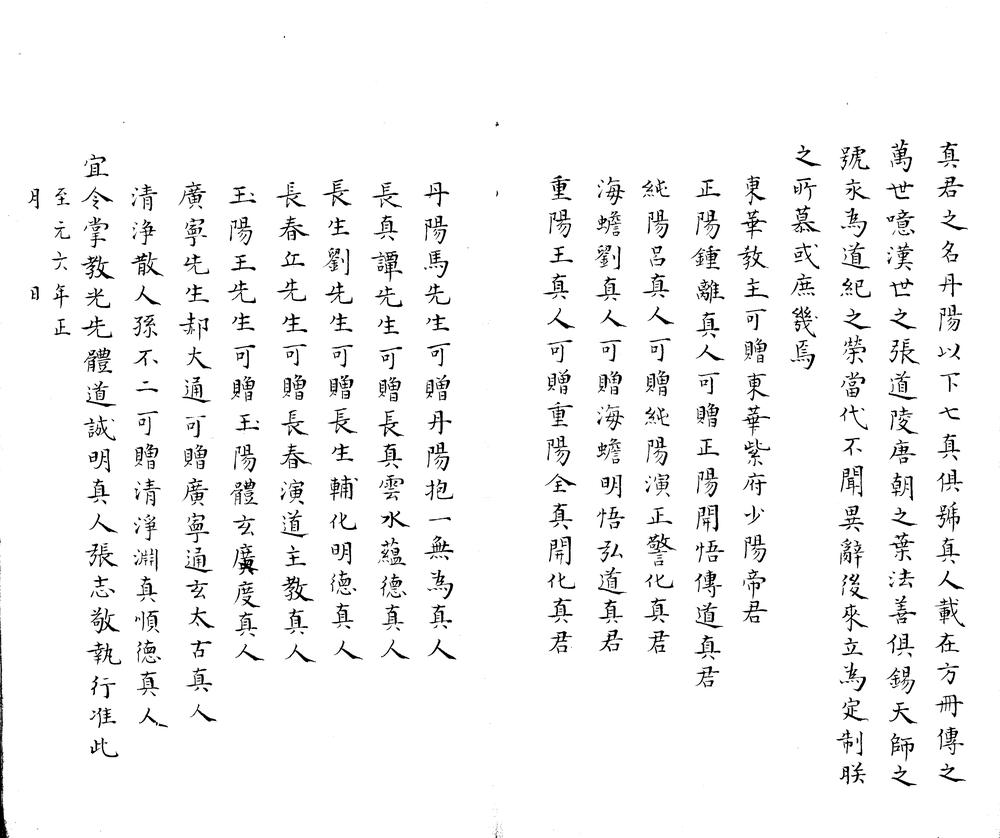 真君之名丹陽以下七真俱號真人載在方冊傳之
萬世噫漢世之張道陵唐朝之葉法善俱錫天師之
號永為道紀之榮當代不聞異辭後來立為定制朕
之所慕或庶幾焉
東華教主可贈東華紫府少陽帝君
正陽鍾離真人可贈正陽開悟傳道真君
純陽呂真人可贈純陽演正警化真君
海蟾劉真人可贈海蟾明悟弘道真君
重陽王真人可贈重陽全真開化真君
丹陽馬先生可贈丹陽抱一無為真人
長真譚先生可贈長真雲水蘊德真人
長生劉先生可贈長生輔化明德真人
長春丘先生可贈長春演道主教真人
玉陽王先生可贈玉陽體玄廣度真人
廣寧先生郝大通可贈廣寧通玄太古真人
清淨散人孫不二可贈清淨淵真順德真人
宜令掌教光先體道誠明真人張志敬執行准此
至元六年正
月　　日